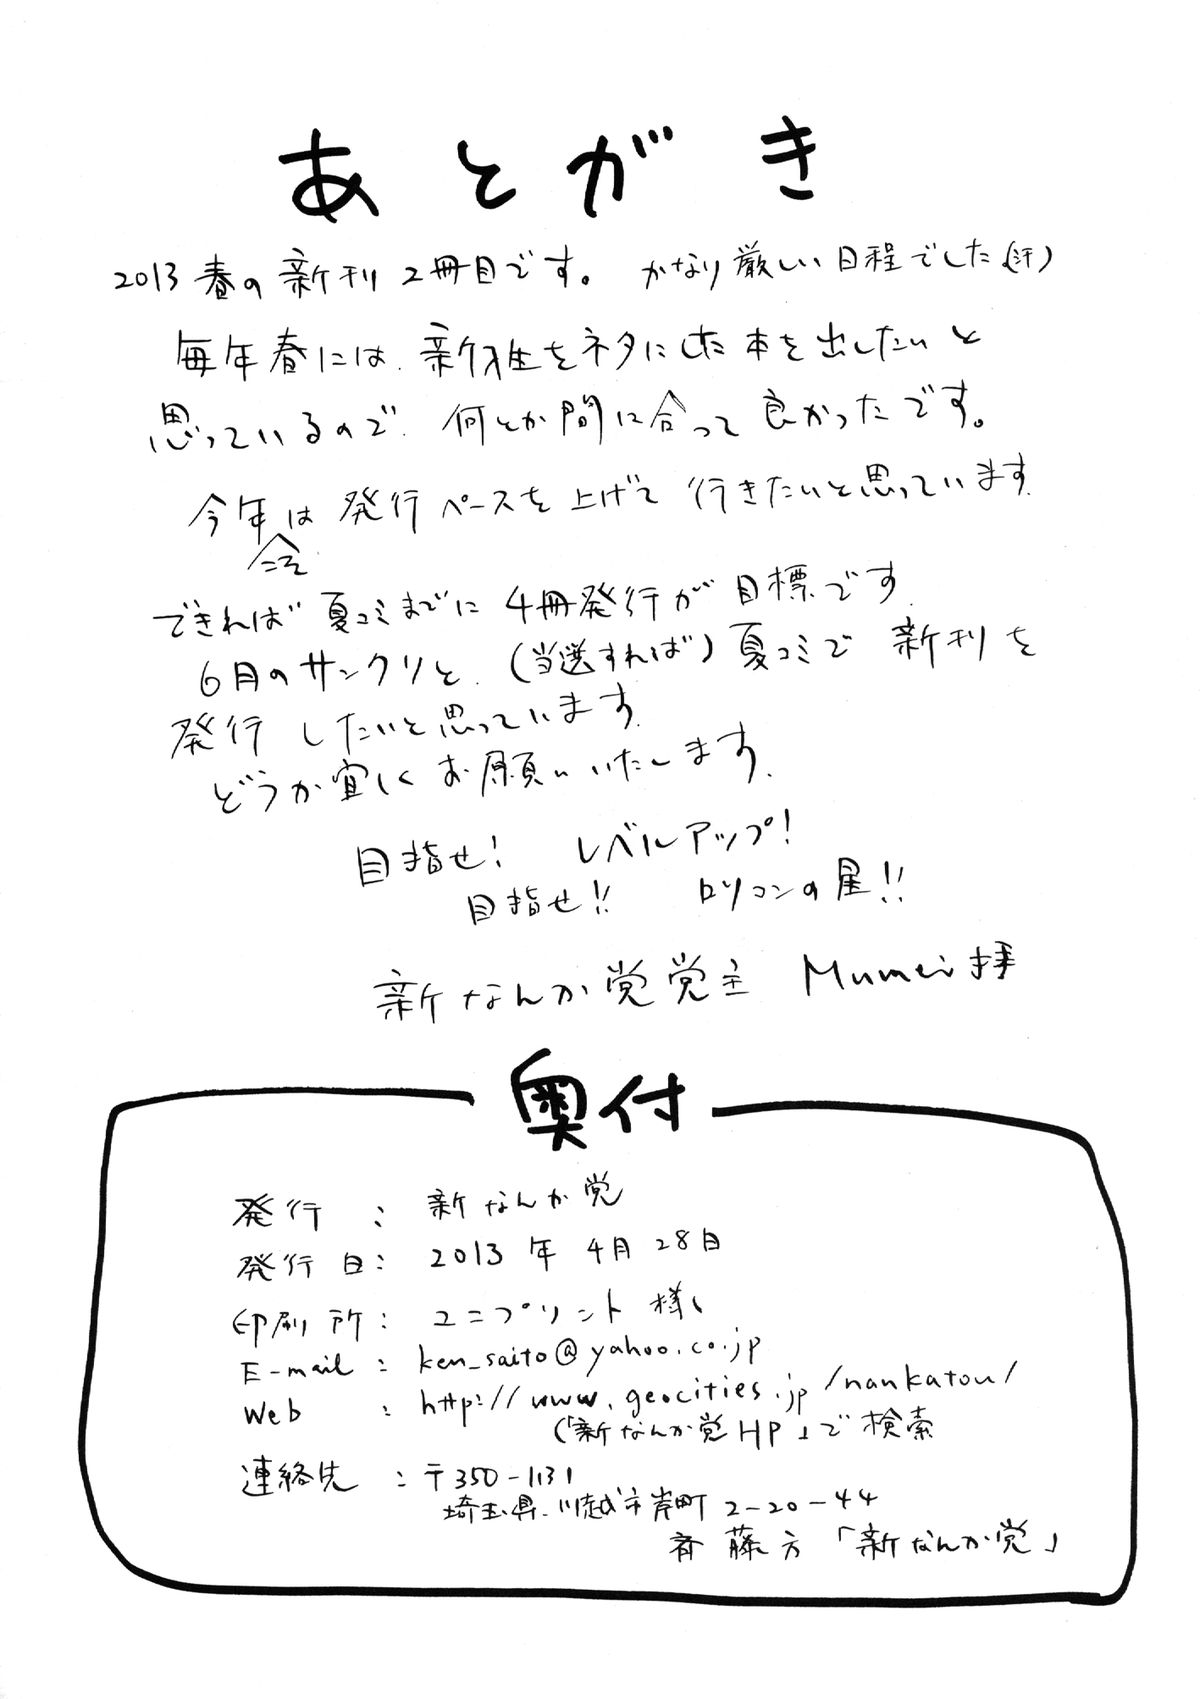 あとがき
2013春の新刊2冊目です。 かなり厳しい日程でした(汗)
毎年春には、新入生をネタにした本を出したいと
思っているので、何とか間に合って良かったです。
今年こそは発行ペースを上げて行きたいと思っています。
できれば夏コミまでに4冊発行が目標です。
6月のサンクリと、(当選すれば)夏コミで新刊を
発行したいと思っています。
どうか宜しくお願いいたします。
目指せ! レベルアップ!
目指せ!! ロリコンの星!!
新なんか党党主 Mumei拝
奥付
発行 : 新なんか党
発行日: 2013年4月28日
印刷所: ユニプリント 様
E-mail : ken_saito@yahoo.co.jp
Web : http://www.geocities.jp/nankatou/
(「新なんか党HP」で検索
連絡先 : 〒350-1131
埼玉県川越市岸町2-20-44
斉藤方「新なんか党」